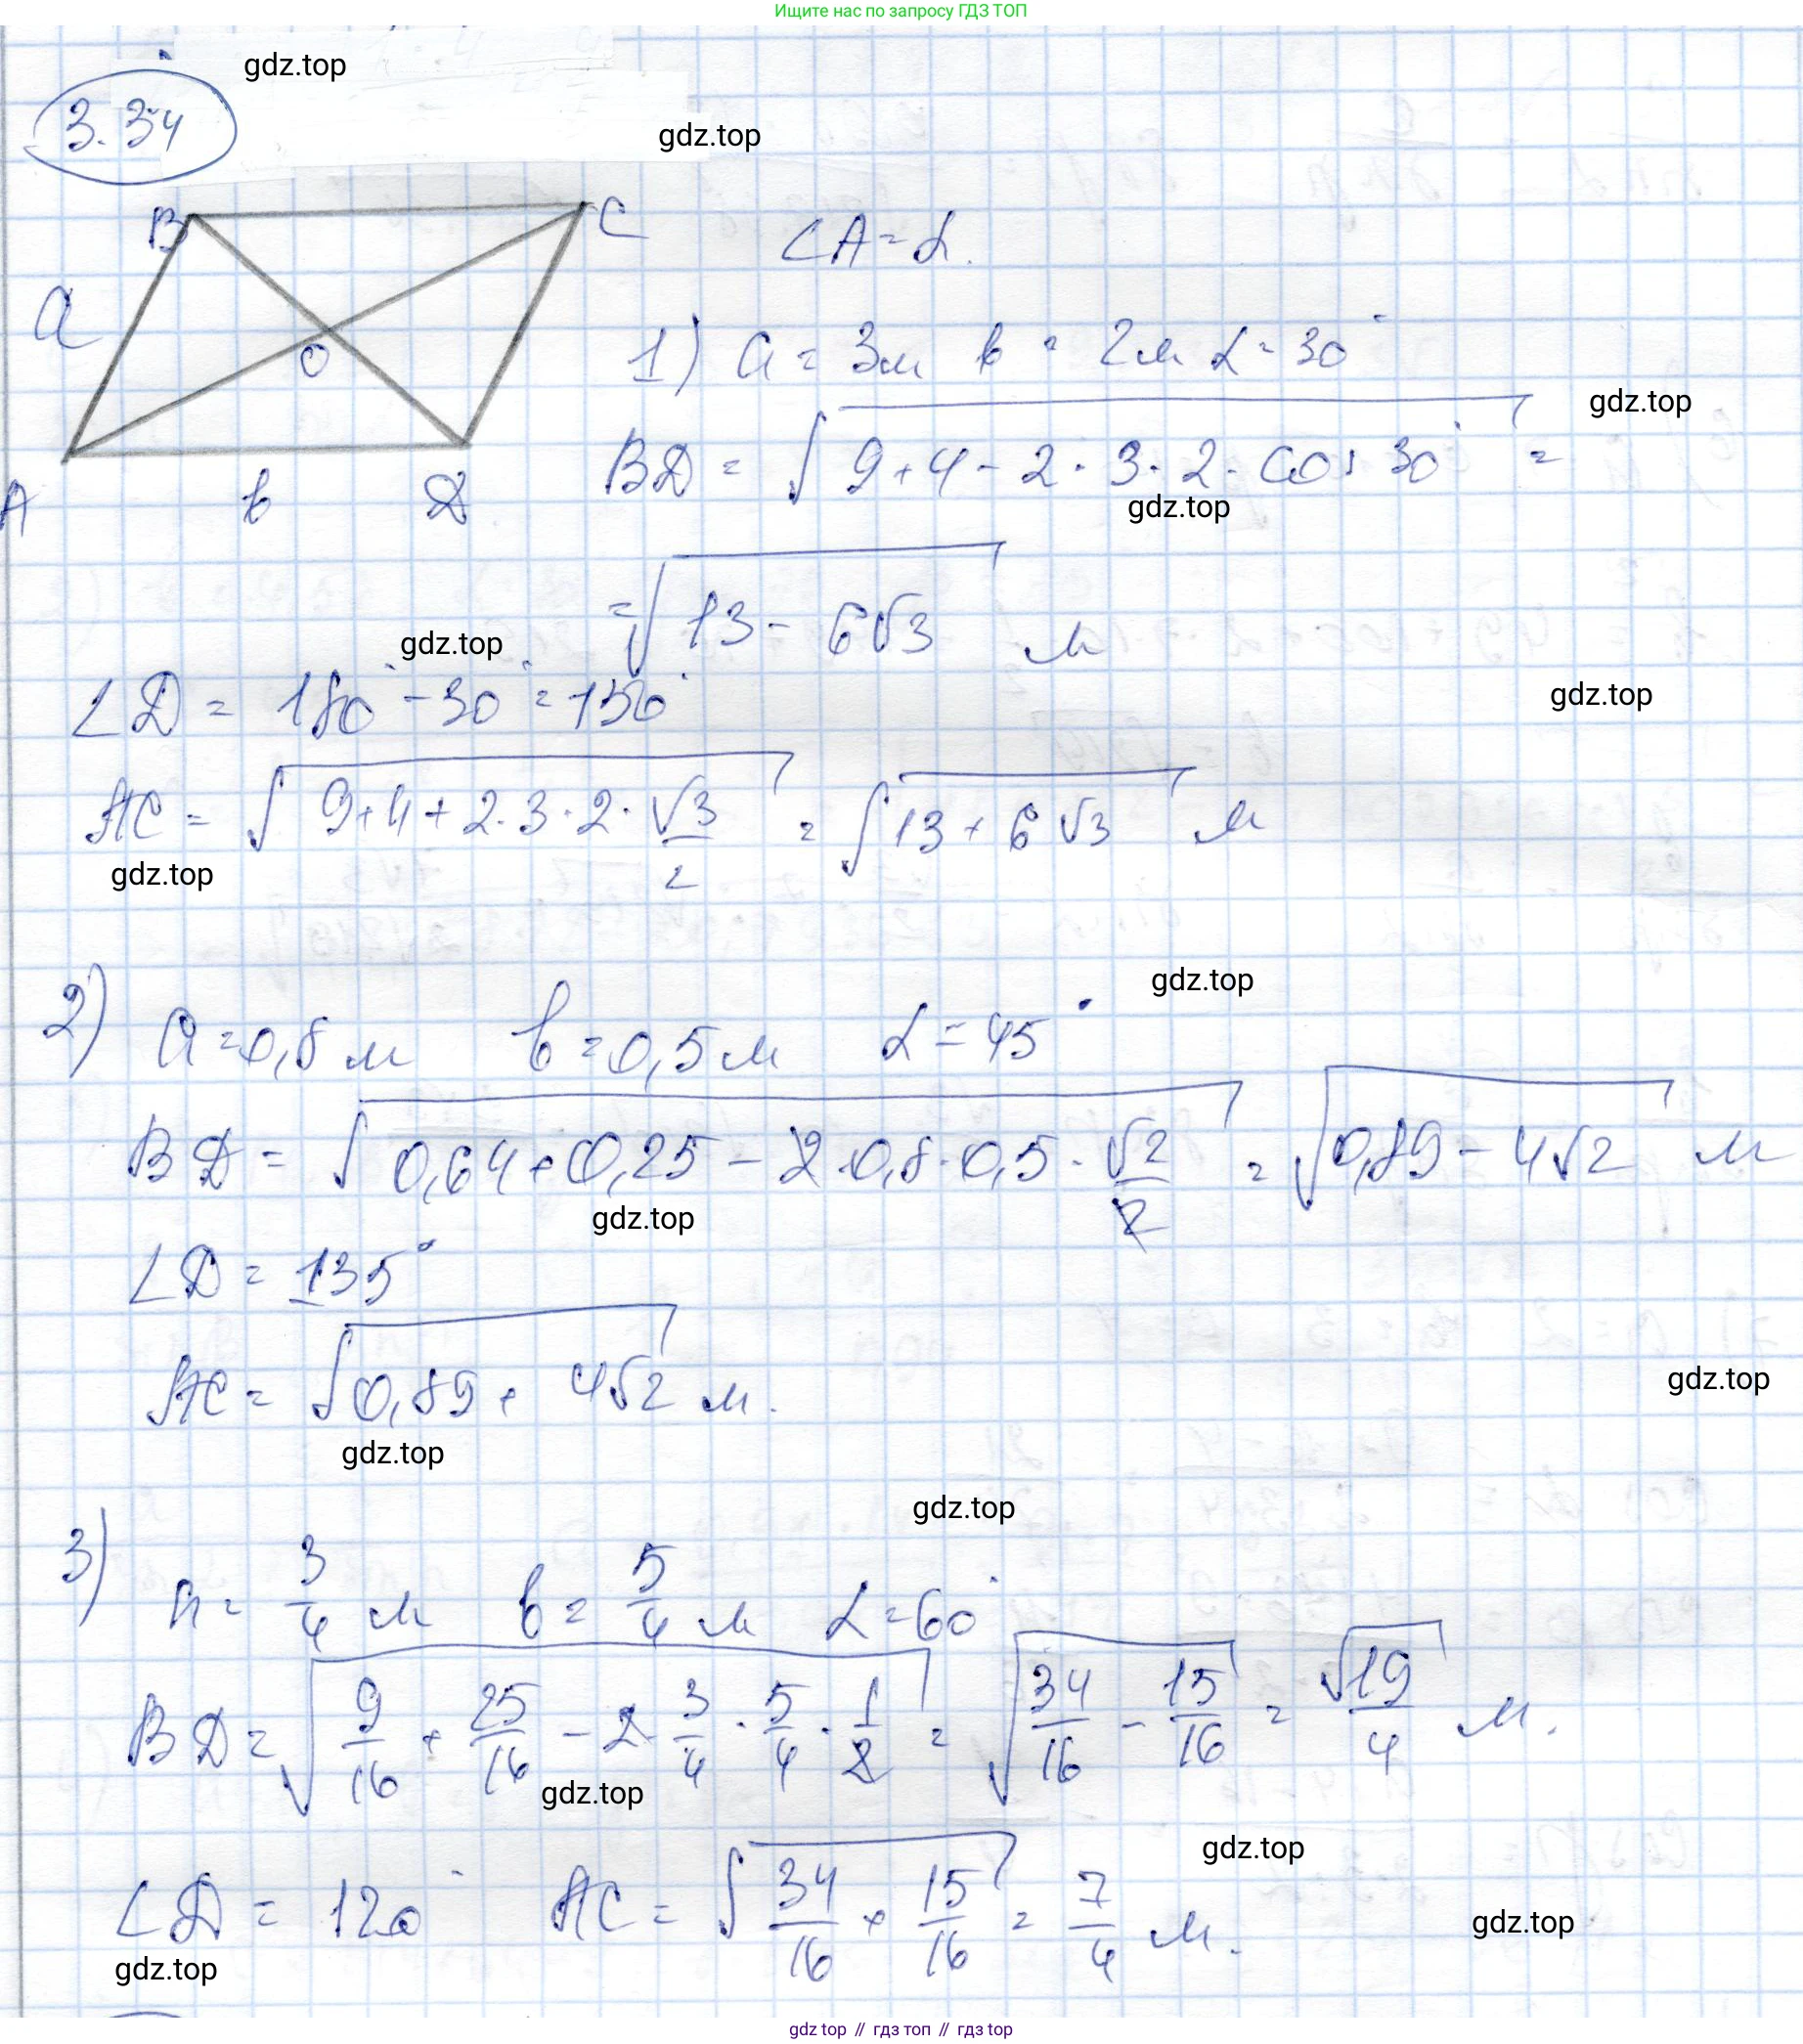 Ищите нас по запросу ГДЗ ТОП
gdz.top
3.34
gdz.top
B
C
∠A = α.
a
O
1) a = 3м b = 2м α = 30°
gdz.top
BD = √(9+4-2·3·2·cos 30°) =
gdz.top
A
b
D
= √(13 - 6√3) м
gdz.top
∠D = 180° - 30° = 150°
gdz.top
AC = √(9+4+2·3·2·√3/2) = √(13+6√3) м
gdz.top
gdz.top
2) a = 0,8 м b = 0,5 м α = 45°
BD = √(0,64+0,25-2·0,8·0,5·√2/2) = √(0,89-4√2) м
gdz.top
∠D = 135°
AC = √(0,89+4√2) м.
gdz.top
gdz.top
gdz.top
3) a = 3/4 м b = 5/4 м α = 60°
BD = √(9/16 + 25/16 - 2·3/4·5/4·1/2) = √(34/16 - 15/16) = √19/4 м.
gdz.top
gdz.top
∠D = 120° AC = √(34/16 + 15/16) = 7/4 м.
gdz.top
gdz.top
gdz.top // гдз топ // гдз top